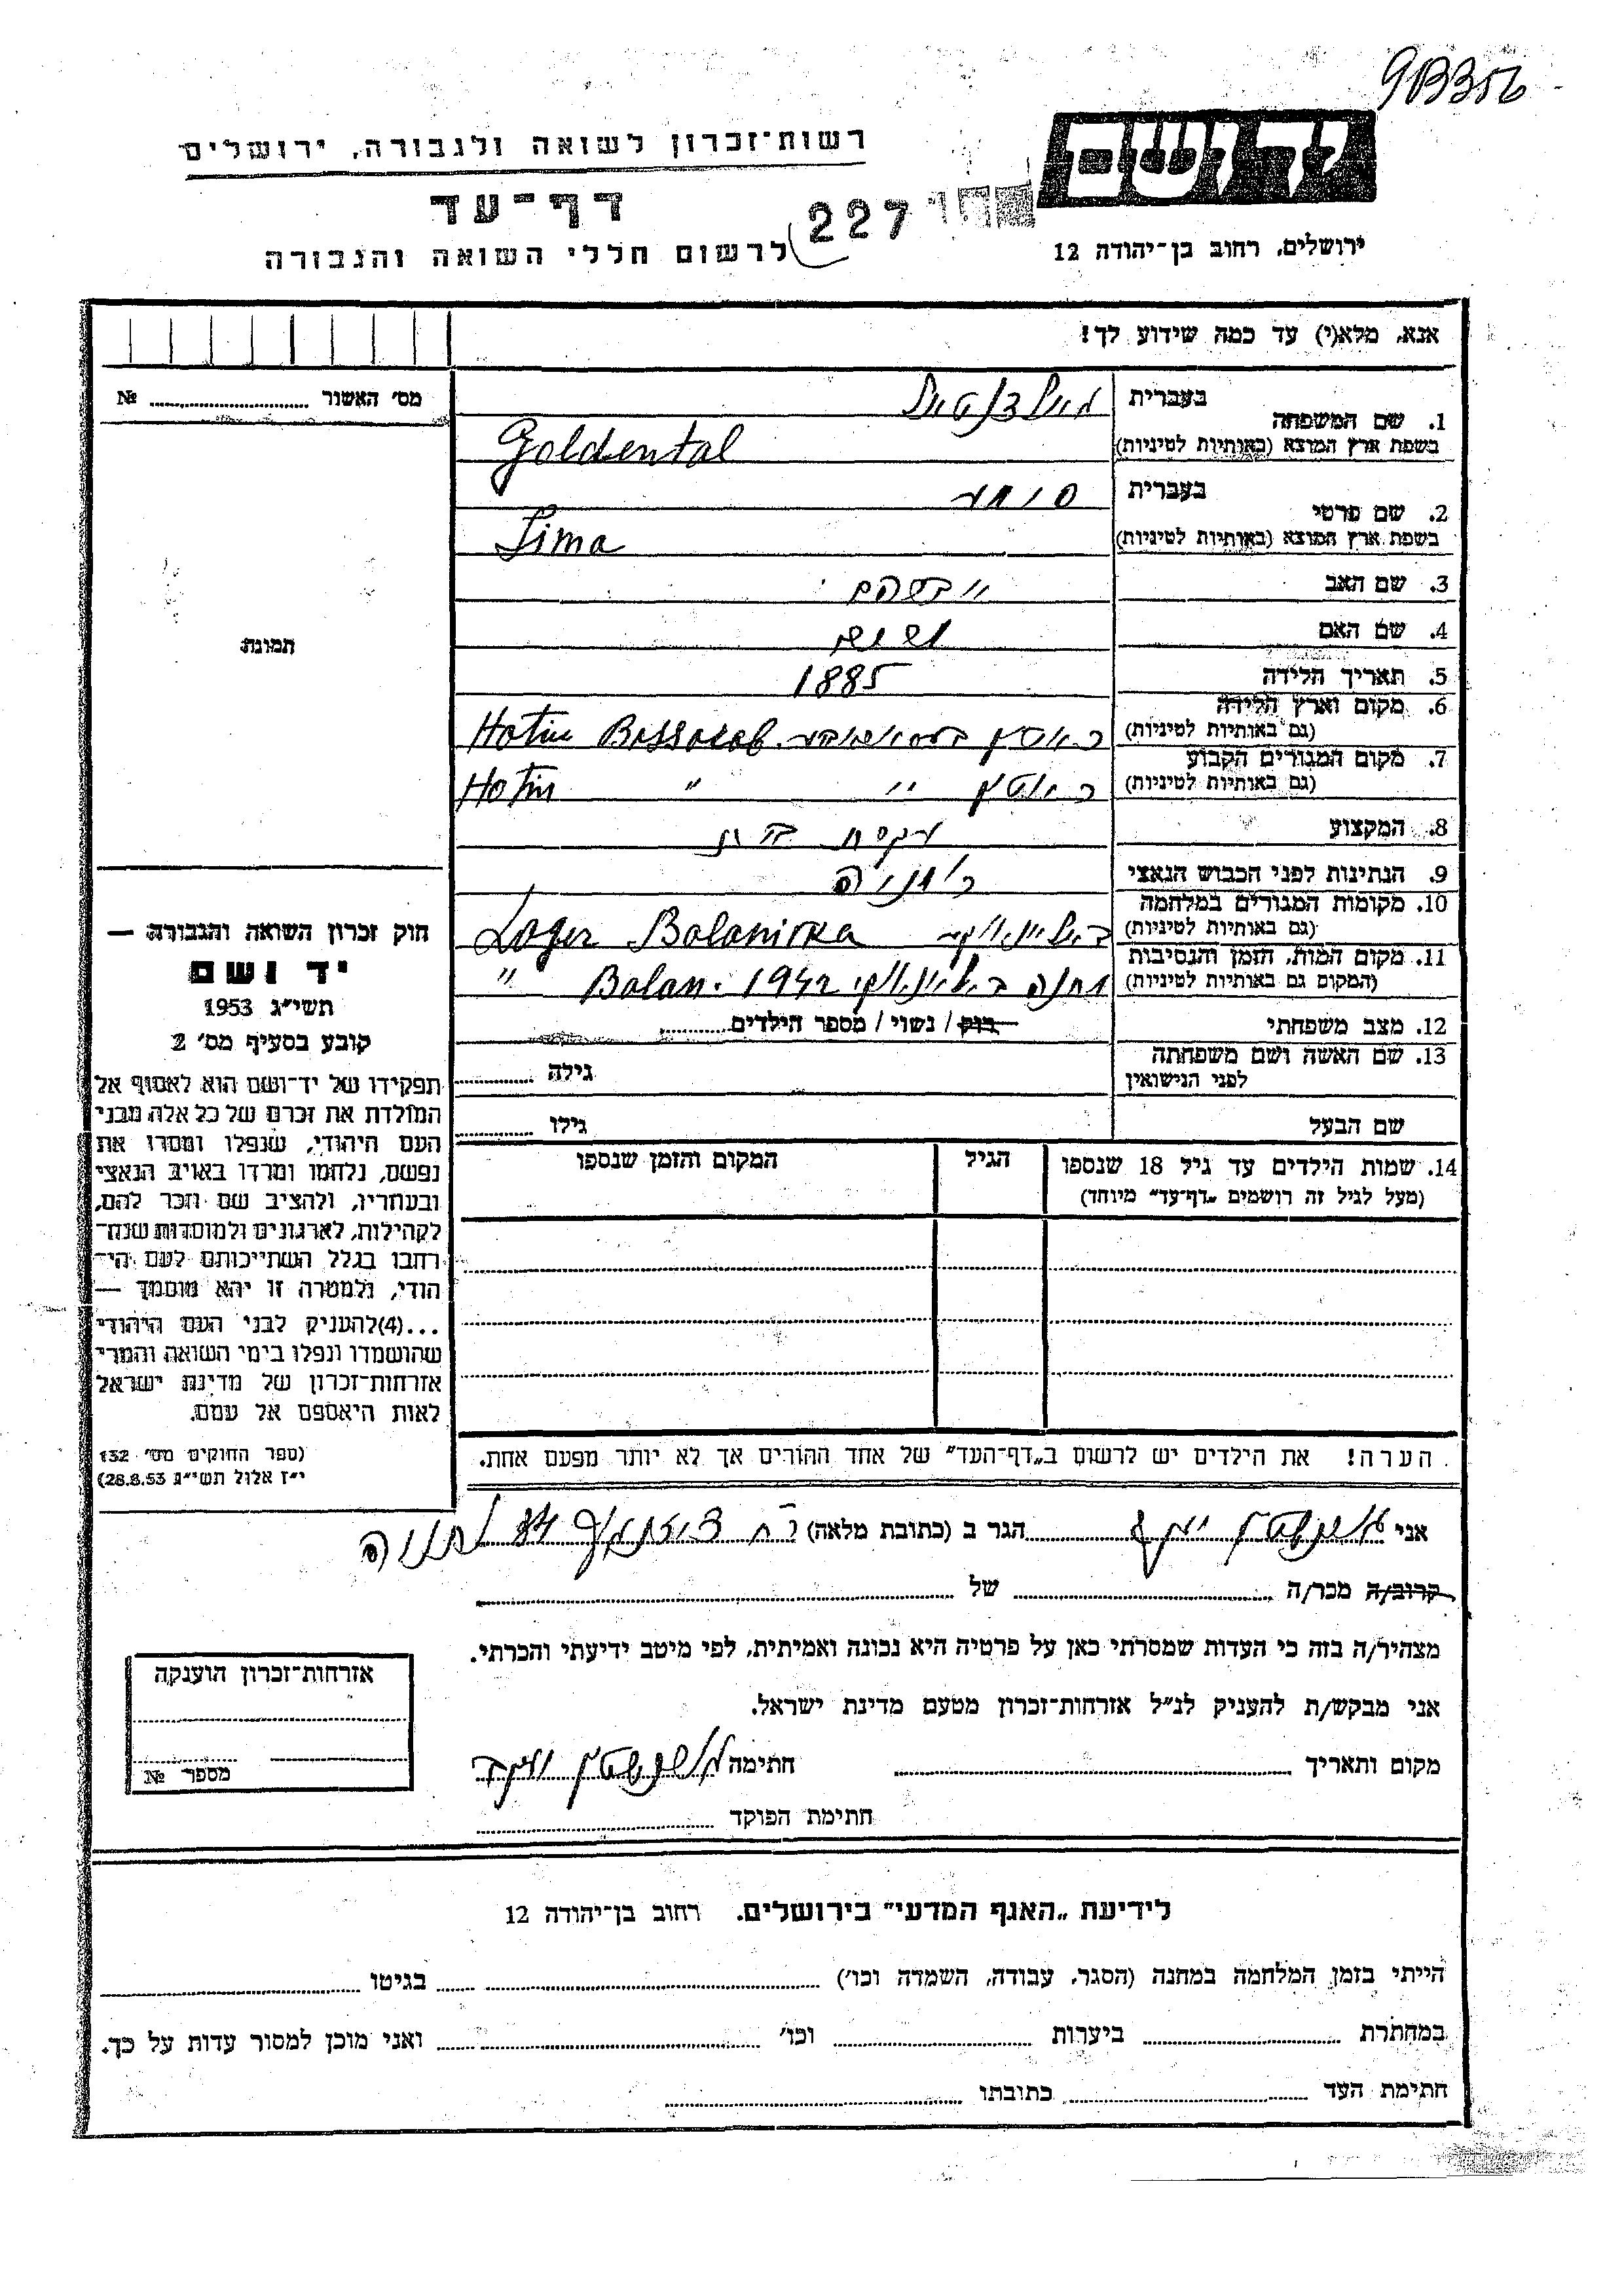 9B356
יד ושם
רשות־זכרון לשואה ולגבורה, ירושלים
דף־עד
227
לרשום חללי השואה והגבורה
ירושלים, רחוב בן־יהודה 12
אנא, מלא(י) עד כמה שידוע לך!
מס׳ האשור № 
1. שם המשפחה
בעברית
גולדנטל
בשפת ארץ המוצא (באותיות לטיניות)
Goldental
2. שם פרטי
בעברית
סימה
בשפת ארץ המוצא (באותיות לטיניות)
Sima
3. שם האב
אברהם
4. שם האם
5. תאריך הלידה
1885
6. מקום וארץ הלידה
(גם באותיות לטיניות)
Hotin Bessarab.
7. מקום המגורים הקבוע
(גם באותיות לטיניות)
Hotin " "
8. המקצוע
עקרת בית
9. הנתינות לפני הכבוש הנאצי
רומניה
10. מקומות המגורים במלחמה
(גם באותיות לטיניות)
Lager Balanivka
11. מקום המות, הזמן והנסיבות
(המקום גם באותיות לטיניות)
מחנה 1942 Balan. "
12. מצב משפחתי
רווק / נשוי / מספר הילדים
13. שם האשה ושם משפחתה
לפני הנישואין
גילה
שם הבעל
גילו
14. שמות הילדים עד גיל 18 שנספו
(מעל לגיל זה רושמים „דף־עד״ מיוחד)
הגיל
המקום והזמן שנספו
הערה! את הילדים יש לרשום ב„דף־העד״ של אחד ההורים אך לא יותר מפעם אחת.
תמונה
חוק זכרון השואה והגבורה —
יד ושם
תשי״ג 1953
קובע בסעיף מס׳ 2
תפקידו של יד־ושם הוא לאסוף אל
המולדת את זכרם של כל אלה מבני
העם היהודי, שנפלו ומסרו את
נפשם, נלחמו ומרדו באויב הנאצי
ובעוזריו, ולהציב שם וזכר להם,
לקהילות, לארגונים ולמוסדות שנח־
רבו בגלל השתייכותם לעם הי־
הודי, ולמטרה זו יהא מוסמך —
...(4) להעניק לבני העם היהודי
שהושמדו ונפלו בימי השואה והמרי
אזרחות־זכרון של מדינת ישראל
לאות היאספם אל עמם.
(ספר החוקים מס׳ 132
י״ז אלול תשי״ג 28.8.53)
אני הגר ב (כתובת מלאה)
קרוב/ה מכר/ה של
מצהיר/ה בזה כי העדות שמסרתי כאן על פרטיה היא נכונה ואמיתית, לפי מיטב ידיעתי והכרתי.
אני מבקש/ת להעניק לנ״ל אזרחות־זכרון מטעם מדינת ישראל.
מקום ותאריך חתימה
חתימת הפוקד
אזרחות־זכרון הוענקה
מספר №
לידיעת „האגף המדעי״ בירושלים. רחוב בן־יהודה 12
הייתי בזמן המלחמה במחנה (הסגר, עבודה, השמדה וכו׳) בגיטו
במחתרת ביערות וכו׳ ואני מוכן למסור עדות על כך.
חתימת העד כתובתו